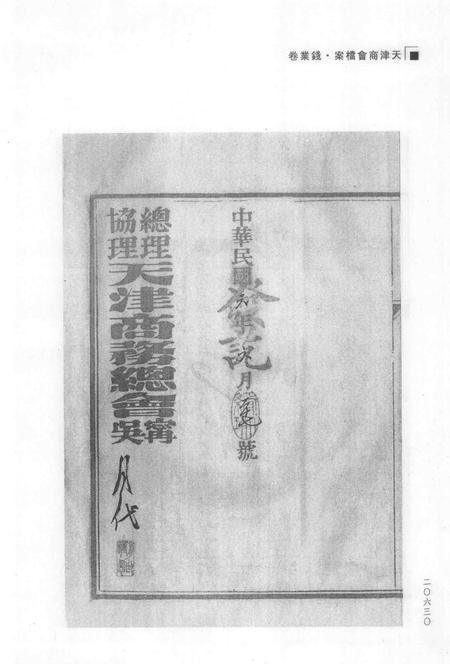 天津商會檔案・錢業卷
中華民國元年月號
總理
協理
天津商務總會
甯
吳
代
二〇六三〇